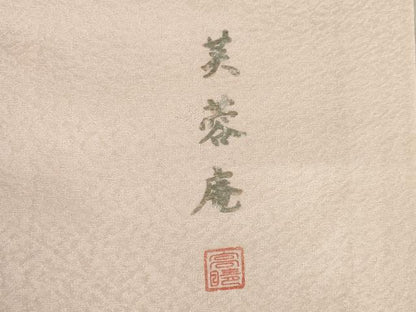 芙蓉庵